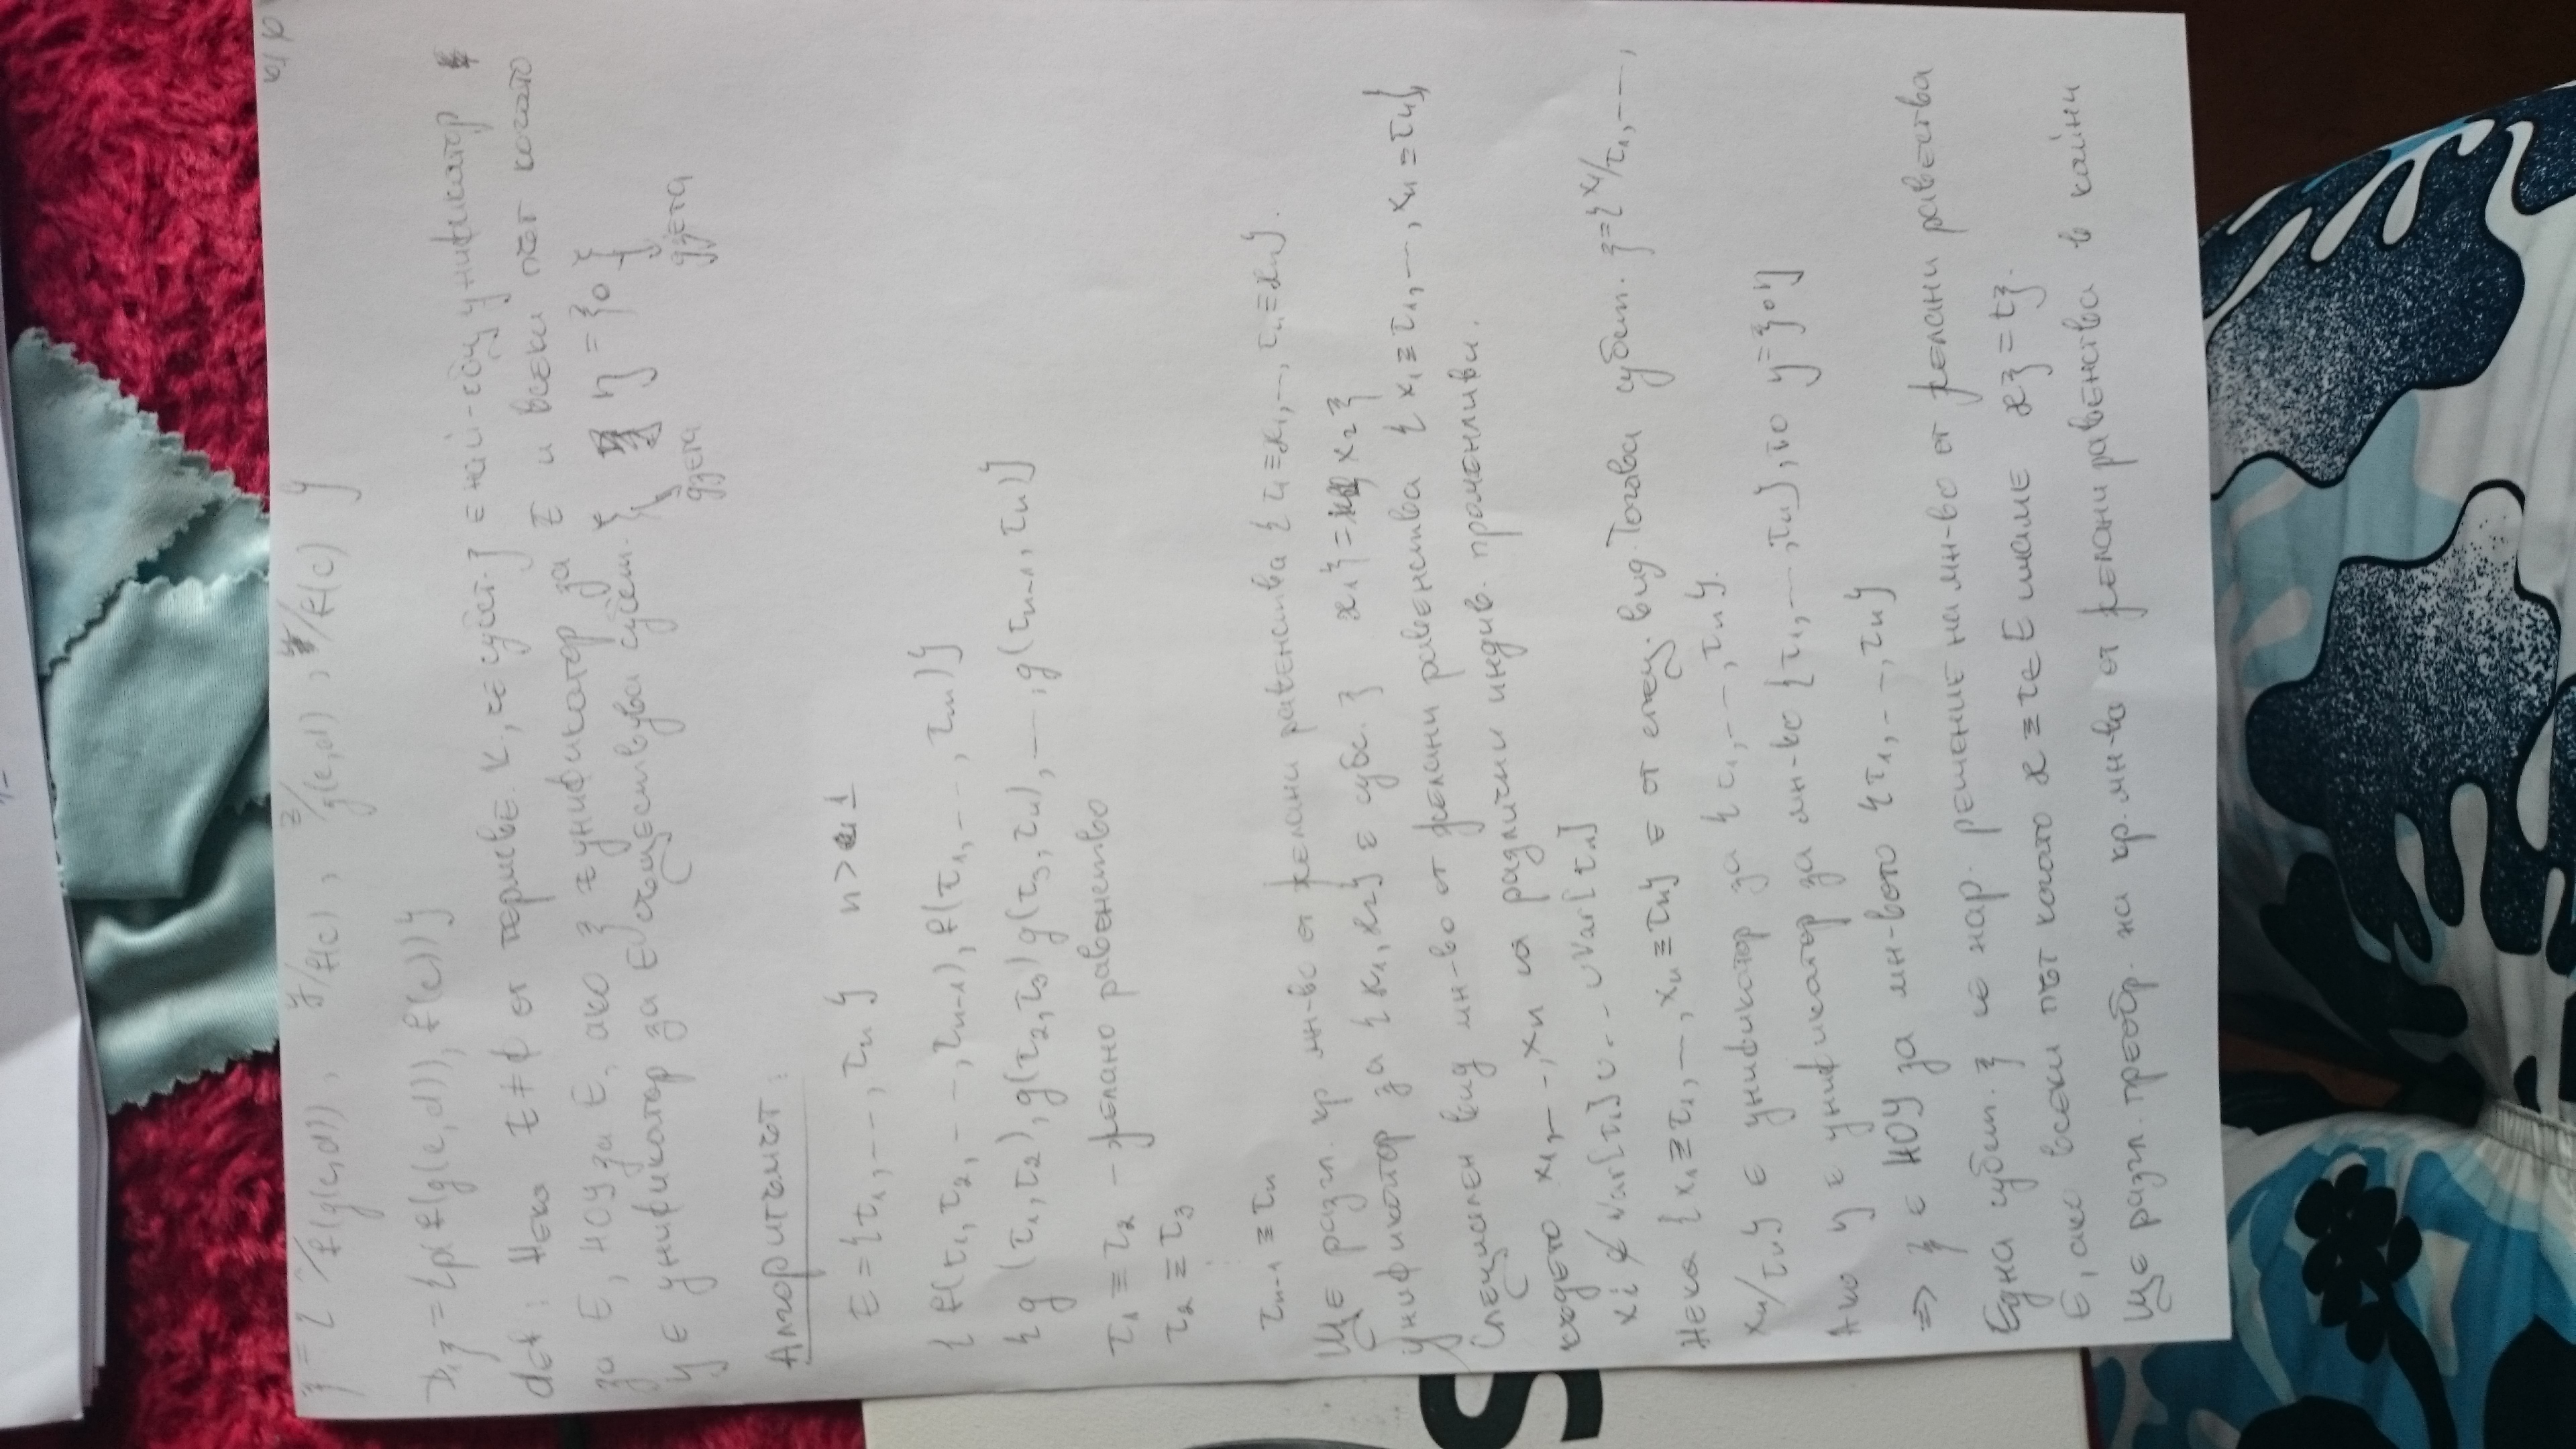 6/10
ξ = { x/f(g(c,d)), y/f(c), z/g(c,d), u/f(c) }
D₁ξ = {p(f(g(c,d)), f(c))}
def: Нека E ≠ ∅ от термове. К, че субст. ξ е най-общ унификатор
за E, НОУ за E, ако ξ е унификатор за E и всеки път когато
η е унификатор за E съществува субст. ζ η = ξ∘ζ
дзета дзета
Алгоритъмът:
E = {τ₁, --, τₙ} n > 1
{f(τ₁, τ₂, --, τₙ₋₁), f(τ₁, --, τₙ)}
{g(τ₁,τ₂), g(τ₂,τ₃) g(τ₃,τₙ), --, g(τₙ₋₁,τₙ)}
τ₁ ≡ τ₂ - желано равенство
τ₂ ≡ τ₃
τₙ₋₁ ≡ τₙ
Ще разгл. кр мн-во от желани равенства {τ₁≡ϰ₁, --, τₙ≡ϰₙ}.
Унификатор за {ϰ₁, ϰ₂} е субс. ξ ϰ₁ξ = ϰ₂ξ
Специален вид мн-во от желани равенства {x₁≡τ₁, --, xₙ≡τₙ},
където x₁, --, xₙ са различни индив. променливи.
xᵢ ∉ Var[τ₁] ∪ -- ∪ Var[τₙ]
Нека {x₁≡τ₁, --, xₙ≡τₙ} е от спец. вид. Тогава субст. ξ={x₁/τ₁, --,
xₙ/τₙ} е унификатор за {τ₁, --, τₙ}.
Ако η е унификатор за мн-во {τ₁, --, τₙ}, то η=ξ∘η
=> ξ е НОУ за мн-вото {τ₁, --, τₙ}
Една субст. ξ се нар. решение на мн-во от желани равества
E, ако всеки път когато ϰ≡τ∈E имаме ϰξ = τξ.
Ще разгл. преобр. на кр. мн-ва от желани равенства в крайни